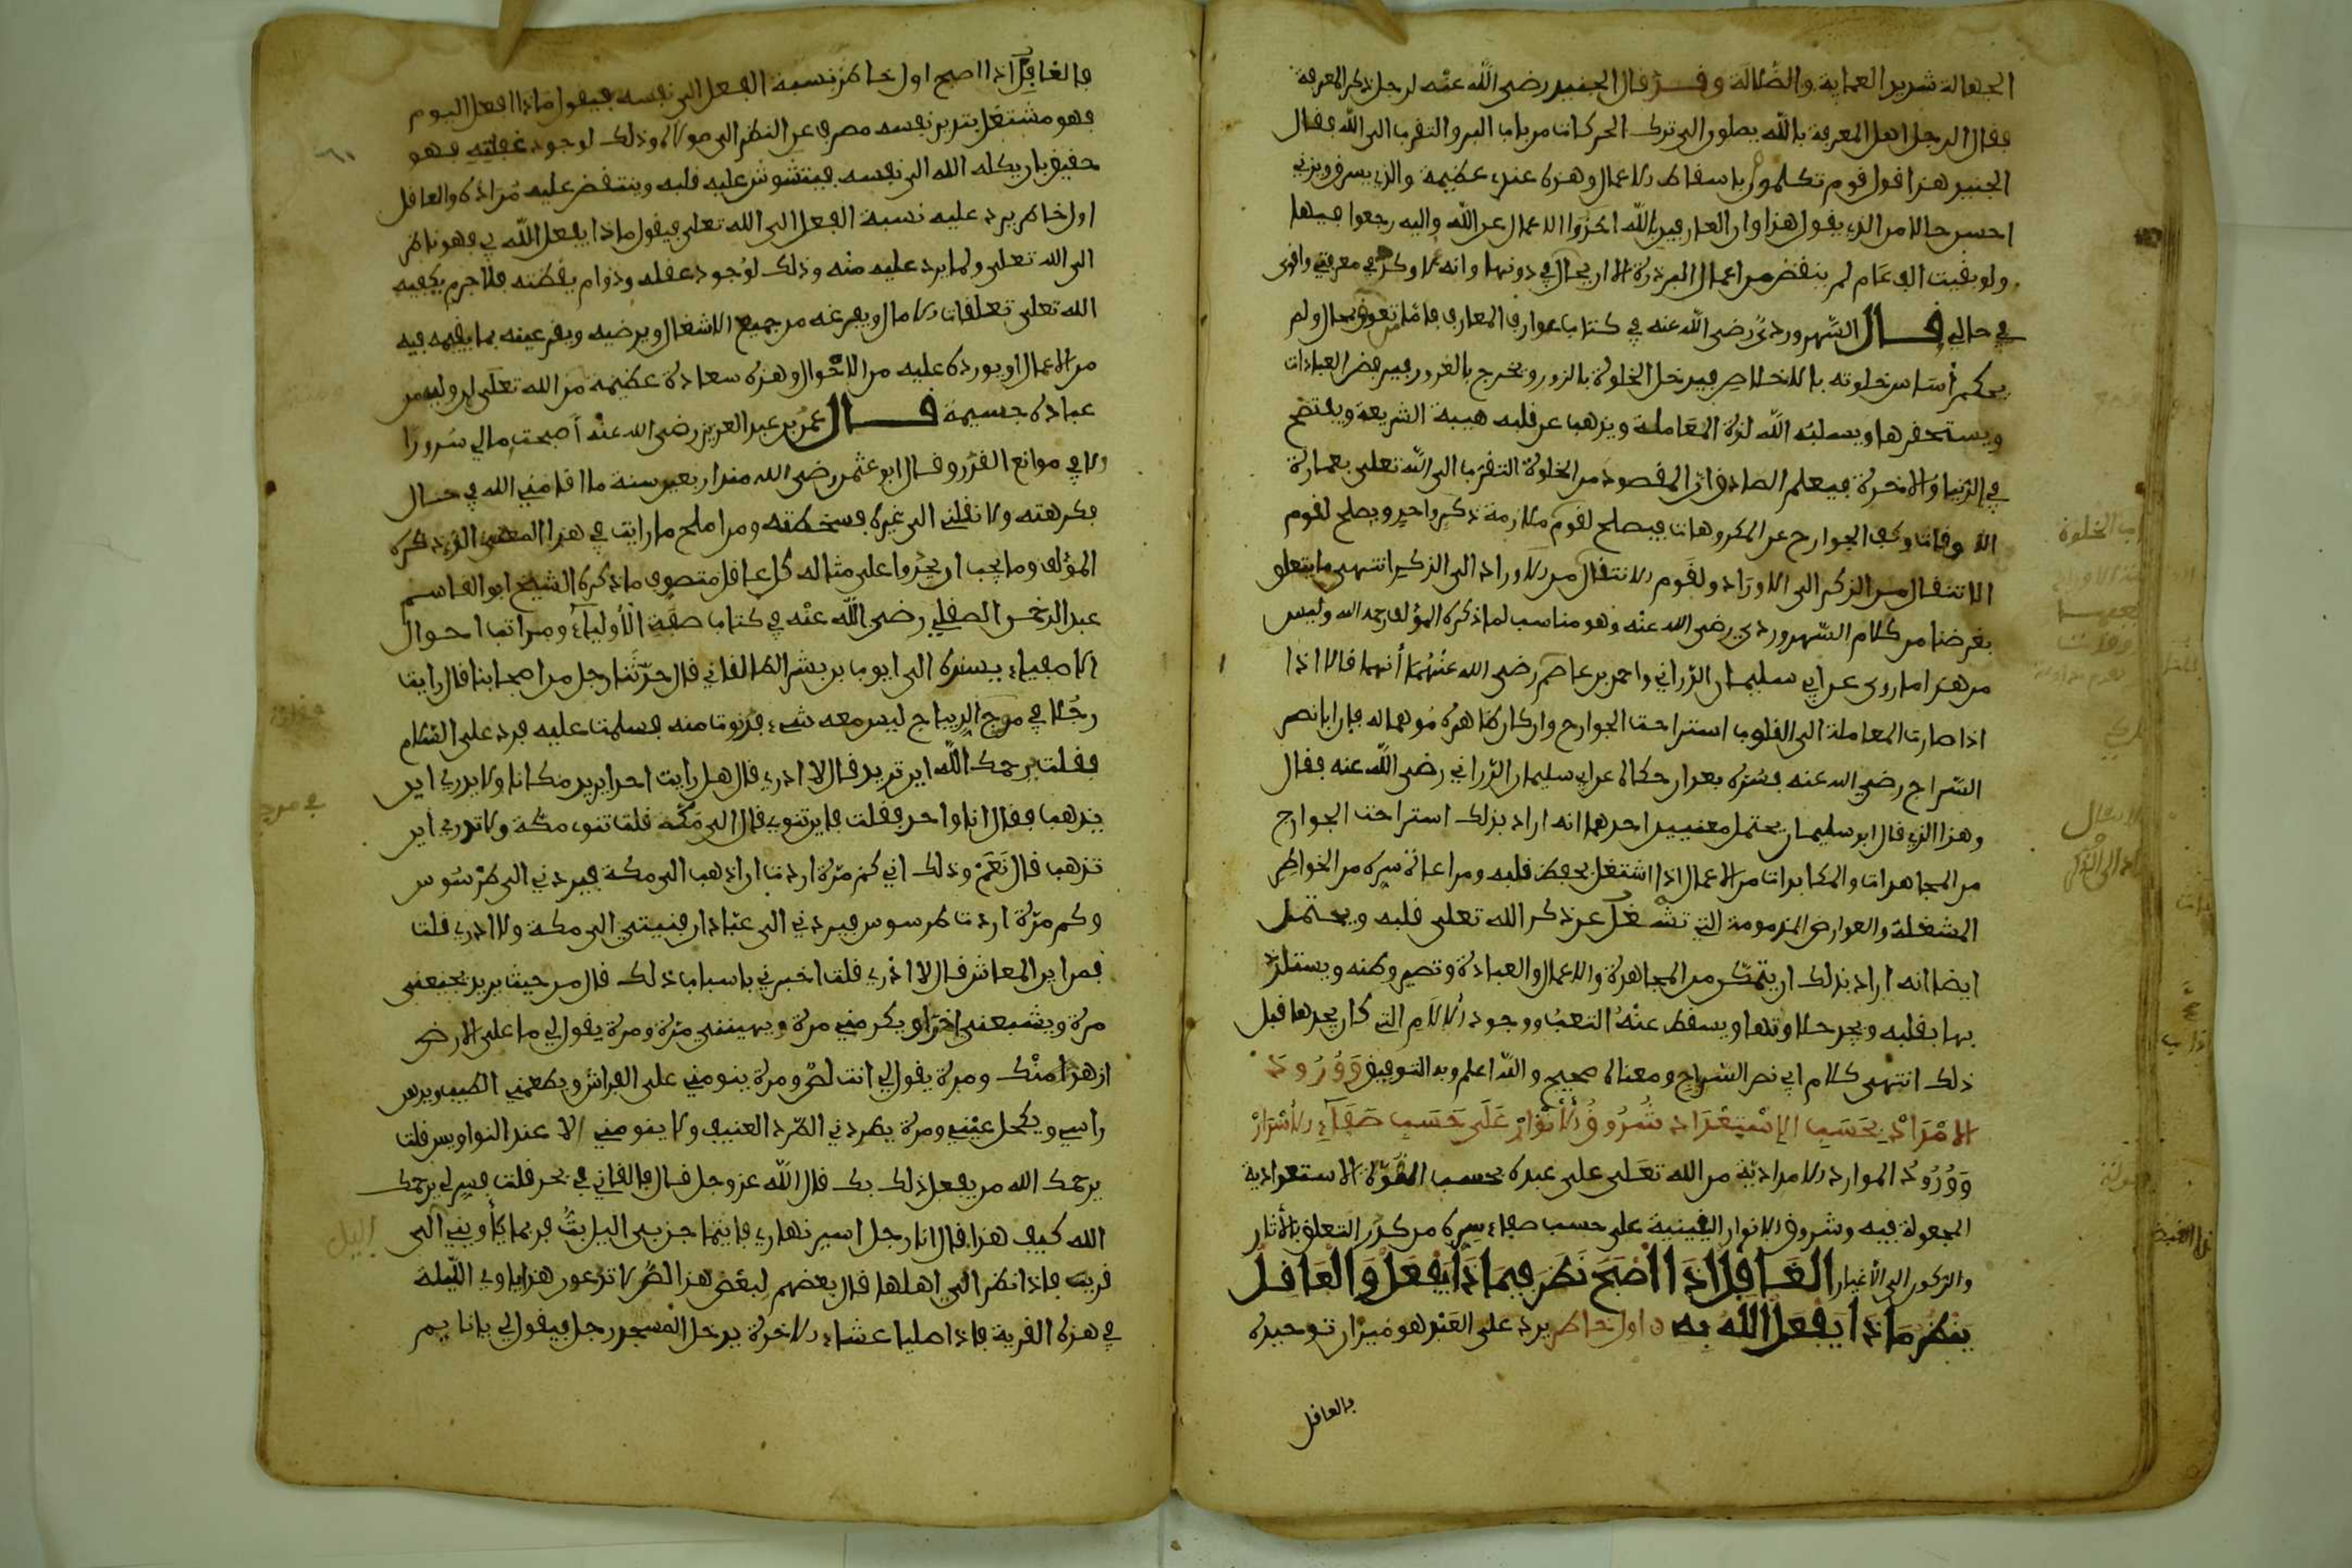 الجهالة شديد العماية والضلالة وقد قال الجنيد رضي الله عنه لرجل ذكر المعرفة
فقال الرجل اهل المعرفة بالله يصلون الى ترك الحركات من باب البر والتقرب الى الله فقال
الجنيد هذا قول قوم تكلموا باسقاط الاعمال وهذه عندي عظيمة والذي يسرق ويزني
احسن حالا من الذي يقول هذا وان العارفين بالله اخذوا الاعمال عن الله واليه رجعوا فيها
ولو بقيت الف عام لم ينقص من اعمال البر ذرة الا ان يحال بي دونها وانه لاوكد في معرفتي واقوى
في حالي قال السهروردي رضي الله عنه في كتاب عوارف المعارف فاما من تعوق بحال ولم
يحكم أساس خلوته بالاخلاص فيدخل الخلوة بالزور ويخرج بالغرور فيرفض العبادات
ويستحقرها ويسلبه الله لذة المعاملة ويذهب عن قلبه هيبة الشريعة ويفتضح
في الدنيا والاخرة فيعلم الصادق ان المقصود من الخلوة التقرب الى الله تعلى بعمارة
الاوقات وكف الجوارح عن المكروهات فيصلح لقوم ملازمة ذكر واحد ويصلح لقوم
الانتقال من الذكر الى الاوراد ولقوم الانتقال من الاوراد الى الذكر انتهى ما يتعلق
بغرضنا من كلام السهروردي رضي الله عنه وهو مناسب لما ذكره المؤلف رحمه الله وليس
من هذا ما روى عن ابي سليمان الدراني واحمد بن عاصم رضي الله عنهما أنهما قالا اذا
اذا صارت المعاملة الى القلوب استراحت الجوارح وان كان ظاهره موهما له فان ابا نصر
السراج رضي الله عنه فسره بعد ان حكاه عن ابي سليمان الدراني رضي الله عنه فقال
وهذا الذي قال ابو سليمان يحتمل معنيين احدهما انه اراد بذلك استراحت الجوارح
من المجاهدات والمكابدات من الاعمال اذا اشتغل بحفظ قلبه ومراعاة سره من الخواطر
المشغلة والعوارض المذمومة التي تشغل عن ذكر الله تعلى قلبه ويحتمل
ايضا انه اراد بذلك ان يتمكن من المجاهدة والاعمال والعبادة وتصير وطنه ويستلذ
بها بقلبه ويجد حلاوتها ويسقط عنه التعب ووجود الالام التي كان يجدها قبل
ذلك انتهى كلام ابي نصر السراج ومعناه صحيح والله اعلم وبه التوفيق وورود
الامداد بحسب الاستعداد شروق الانوار على حسب صفاء الاسرار
وورود الموارد الامدادية من الله تعلى على عبده بحسب القوة الاستعدادية
المجعولة فيه وشروق الانوار اليقينية على حسب صفاء سره من كدر التعلق بالاثار
والركون الى الاغيار الغافل اذا اصبح نظر فيما ذا يفعل والعاقل
ينظر ماذا يفعل الله به اول خاطر يرد على العبد هو ميزان توحيده
فالغافل
فالغافل اذا اصبح اول خاطر نسبة الفعل الى نفسه فيقول ماذا افعل اليوم
فهو مشتغل بتدبير نفسه مصرف عن النظر الى مولاه وذلك لوجود غفلته فهو
حقيق بان يكله الله الى نفسه فيتشوش عليه قلبه وينتقض عليه مراده والعاقل
اول خاطر يرد عليه نسبة الفعل الى الله تعلى فيقول ماذا يفعل الله بي فهو ناظر
الى الله تعلى ولما يرد عليه منه وذلك لوجود عقله ودوام يقظته فلا جرم يكفيه
الله تعلى تعلقات الامال ويفرغه من جميع الاشغال ويرضيه ويقر عينه بما يقيمه فيه
من الاعمال او يورده عليه من الاحوال وهذه سعادة عظيمة من الله تعلى
عباده جسيمة قال عمر بن عبد العزيز رضي الله عنه أصبحت مالي سرورا
الا في مواقع القدر وقال ابو عثمن رضي الله منذ اربعين سنة ما اقامني الله في حال
فكرهته ولا نقلني الى غيره فسخطته ومن املح ما رايت في هذا المعنى الذي ذكره
المؤلف وما يجب ان يحذوا على مثاله كل عاقل متصوف ما ذكره الشيخ ابو القاسم
عبد الرحمن الصقلي رضي الله عنه في كتاب صفة الأولياء ومراتب احوال
الاصفياء بسنده الى ايوب بن بشر الطالقاني قال حدثنا رجل من اصحابنا قال رايت
رجلا في مرج الديباج ليس معه شيء فدنوت منه فسلمت عليه فرد علي السلام
فقلت يرحمك الله اين تريد قال لا ادري قال هل رايت احدا يريد مكانا ولا يدري اين
يذهب فقال انا واحد فقلت فاين تنوي قال الى مكة قلت تنوي مكة ولا تدري أين
تذهب قال نعم وذلك اني كم مرة اردت ان اذهب الى مكة فيردني الى طرسوس
وكم مرة اردت طرسوس فيردني الى عبادان فنيتي الى مكة ولا ادري قلت
فمن اين المعاش قال لا ادري قلت اخبرني باسباب ذلك قال من حيث يريد يجيعني
مرة ويشبعني اخرى ويكرمني مرة ويهينني مرة ومرة يقول لي ما على الارض
ازهد منك ومرة يقول لي انت لص ومرة ينومني على الفراش ويطعمني الطيب ويدهن
راسي ويكحل عيني ومرة يطردني الطرد العنيف ولا ينومني الا عند النواويس قلت
يرحمك الله من يفعل ذلك بك قال الله عز وجل قال فالقاني في بحر قلت فسر لي يرحمك
الله كيف هذا قال انا رجل اسير نهاري فاينما جن بي اليل بت فربما يأويني الى
قرية فاذا نظر الي اهلها قال بعضهم لبعض هذا لص لا تدعون هذا ياوي الليلة
في هذه القرية فاذا صليا عشاء الاخرة يدخل المسجد رجل فيقول لي يانايم